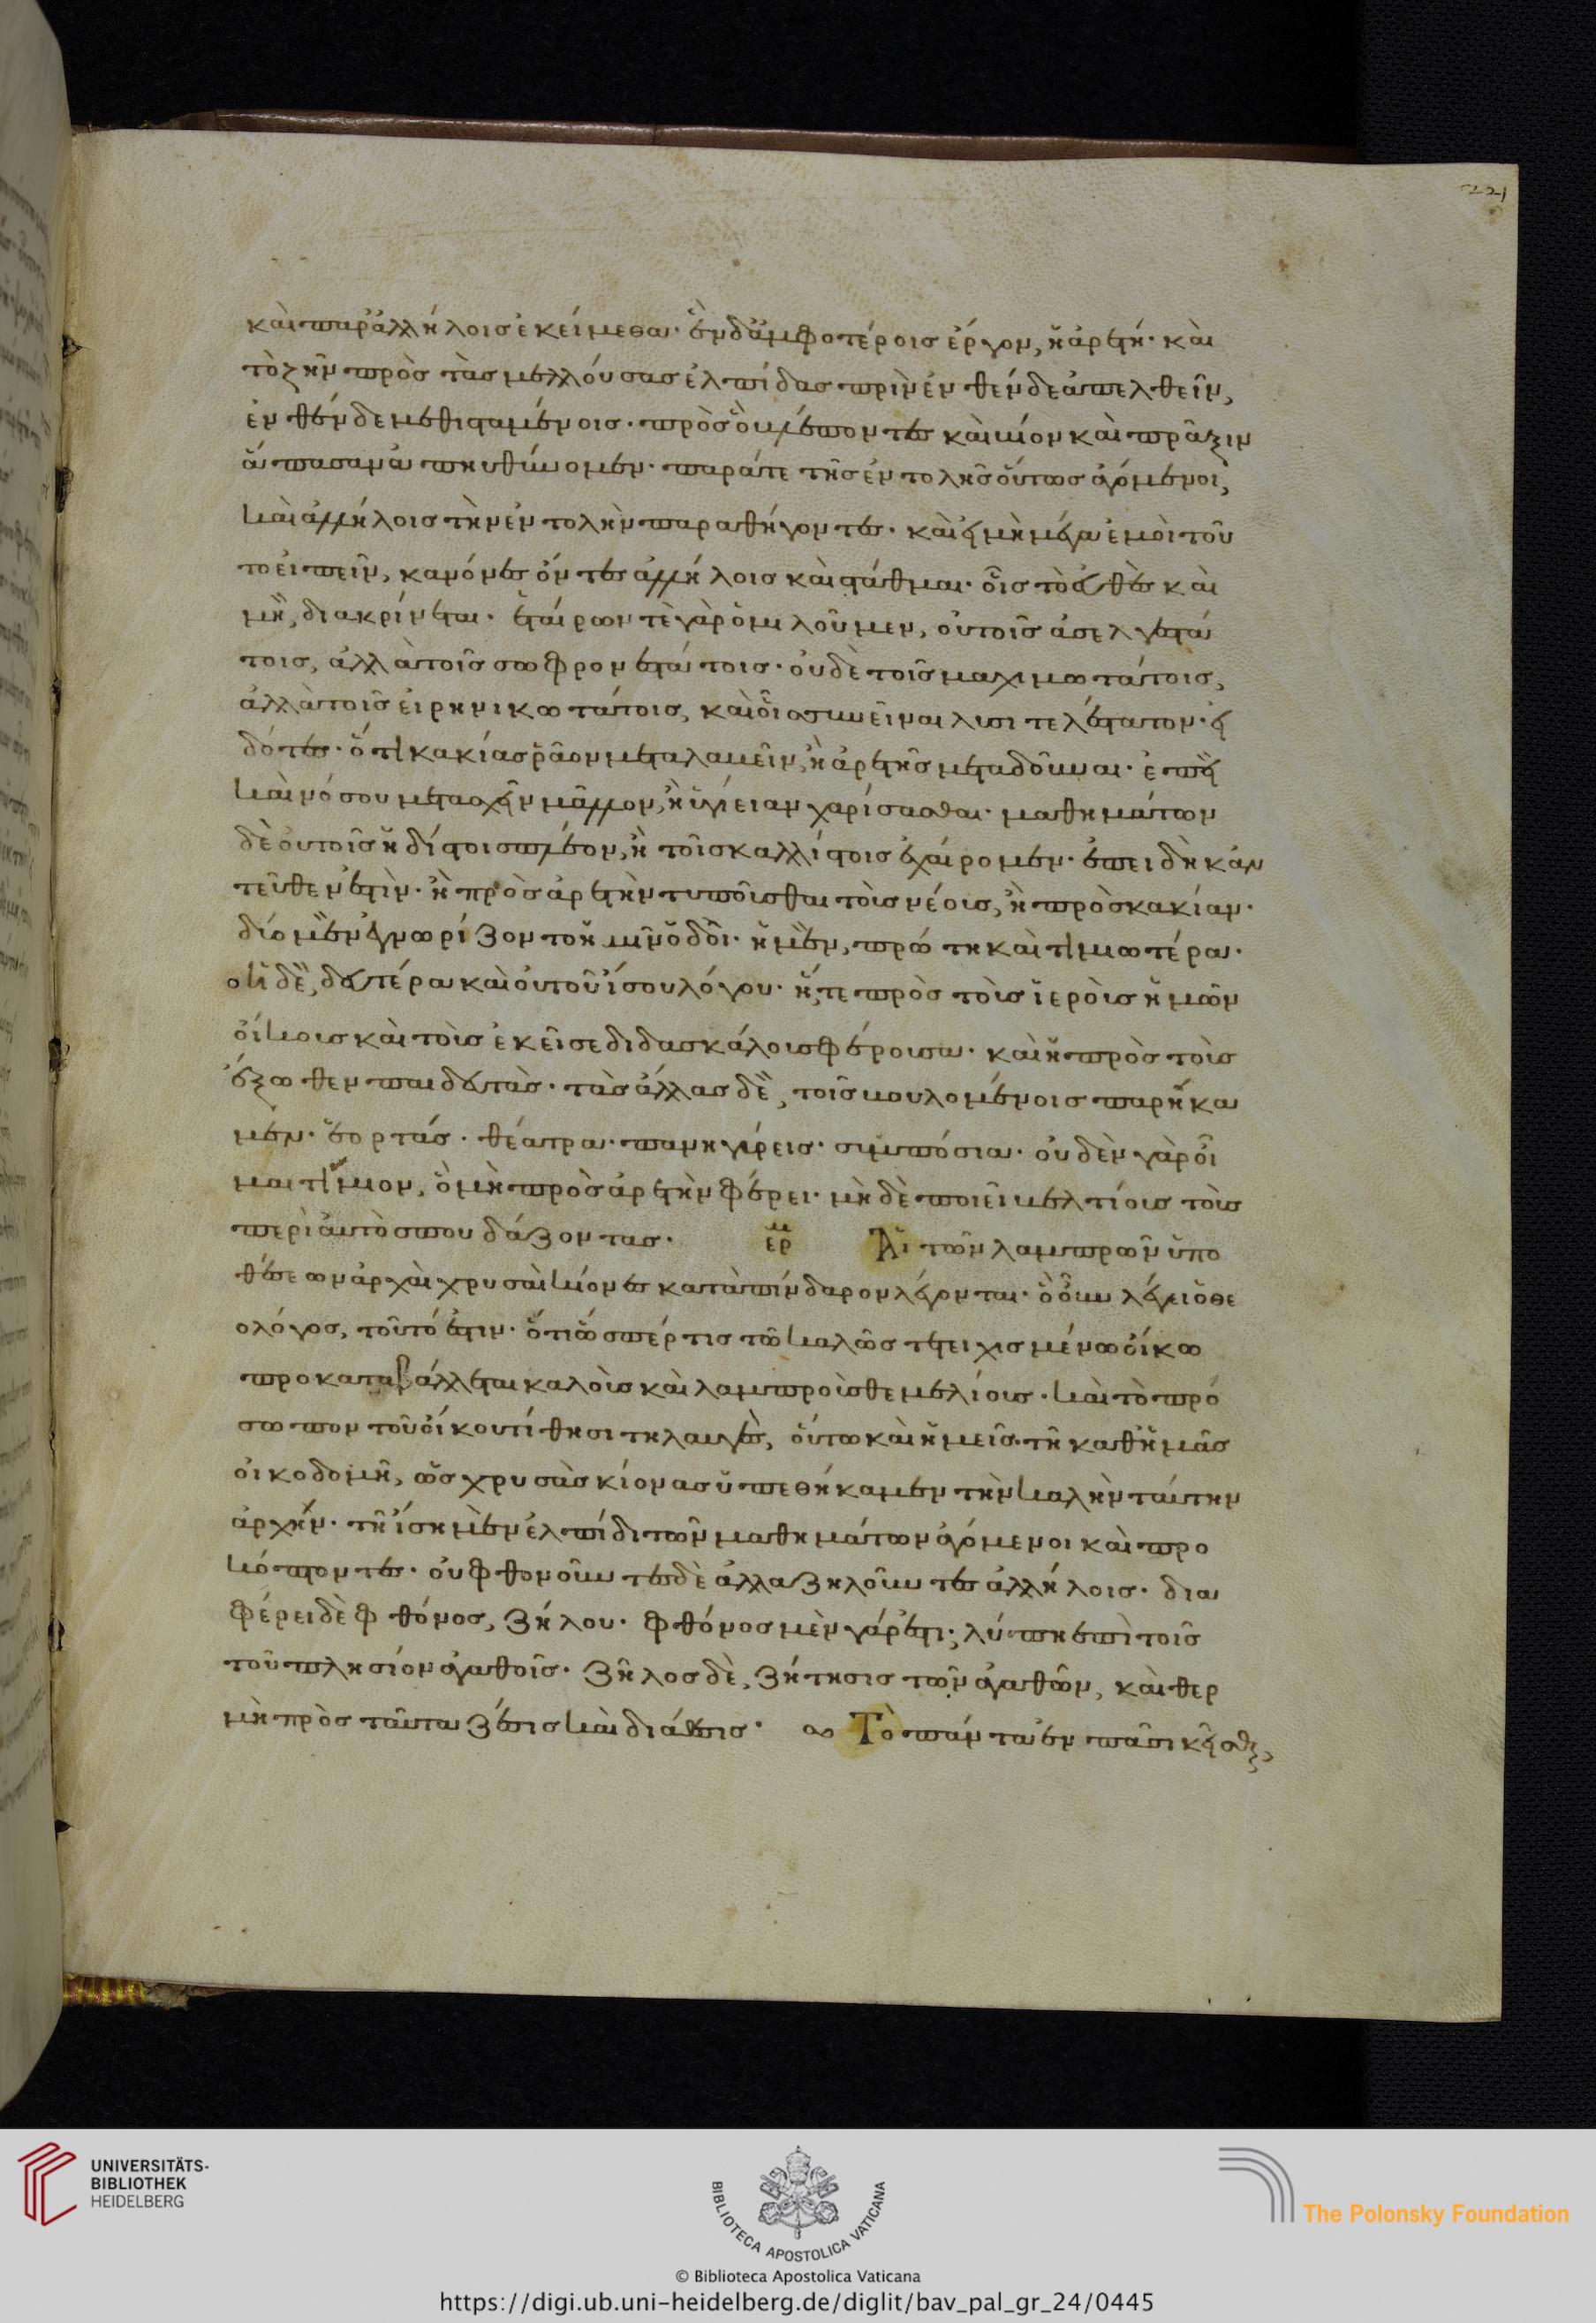 221
καὶ παρ' ἀλλήλοις ἐκείμεθα· ἓν δ' ἀμφοτέροις ἔργον, ἡ ἀρετή· καὶ
τὸ ζῆν πρὸς τὰς μελλούσας ἐλπίδας πρὶν ἐνθένδε ἀπελθεῖν,
ἐνθένδε μεθισταμένοις· πρὸς ὃ βλέποντες καὶ βίον καὶ πρᾶξιν
ἅπασαν ἀπηυθύνομεν· παρά τε τῆς ἐντολῆς οὕτως ἀγόμενοι,
καὶ ἀλλήλοις τὴν ἐντολὴν παραθήγοντες· καὶ εἰ μὴ μέγα ἐμοὶ τοῦ
το εἰπεῖν, κανόνες ὄντες ἀλλήλοις καὶ στάθμαι· οἷς τὸ εὐθὲς καὶ
μὴ, διακρίνεται· ἑταίρων τὲ γὰρ ὁμιλοῦμεν, οὐ τοῖς ἀσελγεστά
τοις, ἀλλὰ τοῖς σωφρονεστάτοις· οὐδὲ τοῖς μαχιμωτάτοις,
ἀλλὰ τοῖς εἰρηνικωτάτοις, καὶ οἷς συνεῖναι λυσιτελέστατον· εἰ
δότες· ὅτι κακίας ῥᾷον μεταλαβεῖν, ἢ ἀρετῆς μεταδοῦναι· ἐπεὶ
καὶ νόσου μετασχεῖν μᾶλλον, ἢ ὑγίειαν χαρίσασθαι· μαθημάτων
δὲ οὐ τοῖς ἡδίστοις πλέον, ἢ τοῖς καλλίστοις ἐχαίρομεν· ἐπειδὴ κἀν
τεῦθεν ἐστὶν· ἢ πρὸς ἀρετὴν τυποῦσθαι τοὺς νέους, ἢ πρὸς κακίαν·
δύο μὲν ἐγνωρίζοντο ἡμῖν ὁδοὶ· ἡ μὲν, πρώτη καὶ τιμιωτέρα·
ἡ δὲ, δευτέρα καὶ οὐ τοῦ ἴσου λόγου· ἥ, τε πρὸς τοὺς ἱεροὺς ἡμῶν
οἴκους καὶ τοὺς ἐκεῖσε διδασκάλους φέρουσα· καὶ ἡ πρὸς τοὺς
ἔξωθεν παιδευτὰς· τὰς ἄλλας δὲ, τοῖς βουλομένοις παρήκα
μεν· ἑορτάς· θέατρα· πανηγύρεις· συμπόσια· οὐδὲν γὰρ οἶ
μαι τίμιον, ὃ μὴ πρὸς ἀρετὴν φέρει· μὴ δὲ ποιεῖ βελτίους τοὺς
περὶ αὐτὸ σπουδάζοντας· ἑρμ Αἱ τῶν λαμπρῶν ὑπο
θέσεων ἀρχαὶ χρυσαῖ κίονες κατὰ πίνδαρον λέγονται· ὃ οὖν λέγει ὁ θε
ολόγος, τοῦτό ἐστιν· ὅτι ὥσπέρ τις τῷ καλῶς τετειχισμένῳ οἴκῳ
προκαταβάλλεται καλοὺς καὶ λαμπροὺς θεμελίους· καὶ τὸ πρό
σωπον τοῦ οἴκου τίθησι τηλαυγὲς, οὕτω καὶ ἡμεῖς· τῇ καθ' ἡμᾶς
οἰκοδομῇ, ὡς χρυσὰς κίονας ὑπεθήκαμεν τὴν καλὴν ταύτην
ἀρχήν· τῇ ἴσῃ μὲν ἐλπίδι τῶν μαθημάτων ἀγόμενοι καὶ προ
κόπτοντες· οὐ φθονοῦντες δὲ ἀλλὰ ζηλοῦντες ἀλλήλοις· δια
φέρει δὲ φθόνος, ζήλου· φθόνος μὲν γάρ ἐστι, λύπη ἐπὶ τοῖς
τοῦ πλησίον ἀγαθοῖς· ζῆλος δὲ, ζήτησις τῶν ἀγαθῶν, καὶ θερ
μὴ πρὸς ταῦτα ζέσις καὶ διάθεσις· Τὸ πάντα ἐν πᾶσι κεῖσθαι,
UNIVERSITÄTS-
BIBLIOTHEK
HEIDELBERG
BIBLIOTECA APOSTOLICA VATICANA
The Polonsky Foundation
© Biblioteca Apostolica Vaticana
https://digi.ub.uni-heidelberg.de/diglit/bav_pal_gr_24/0445